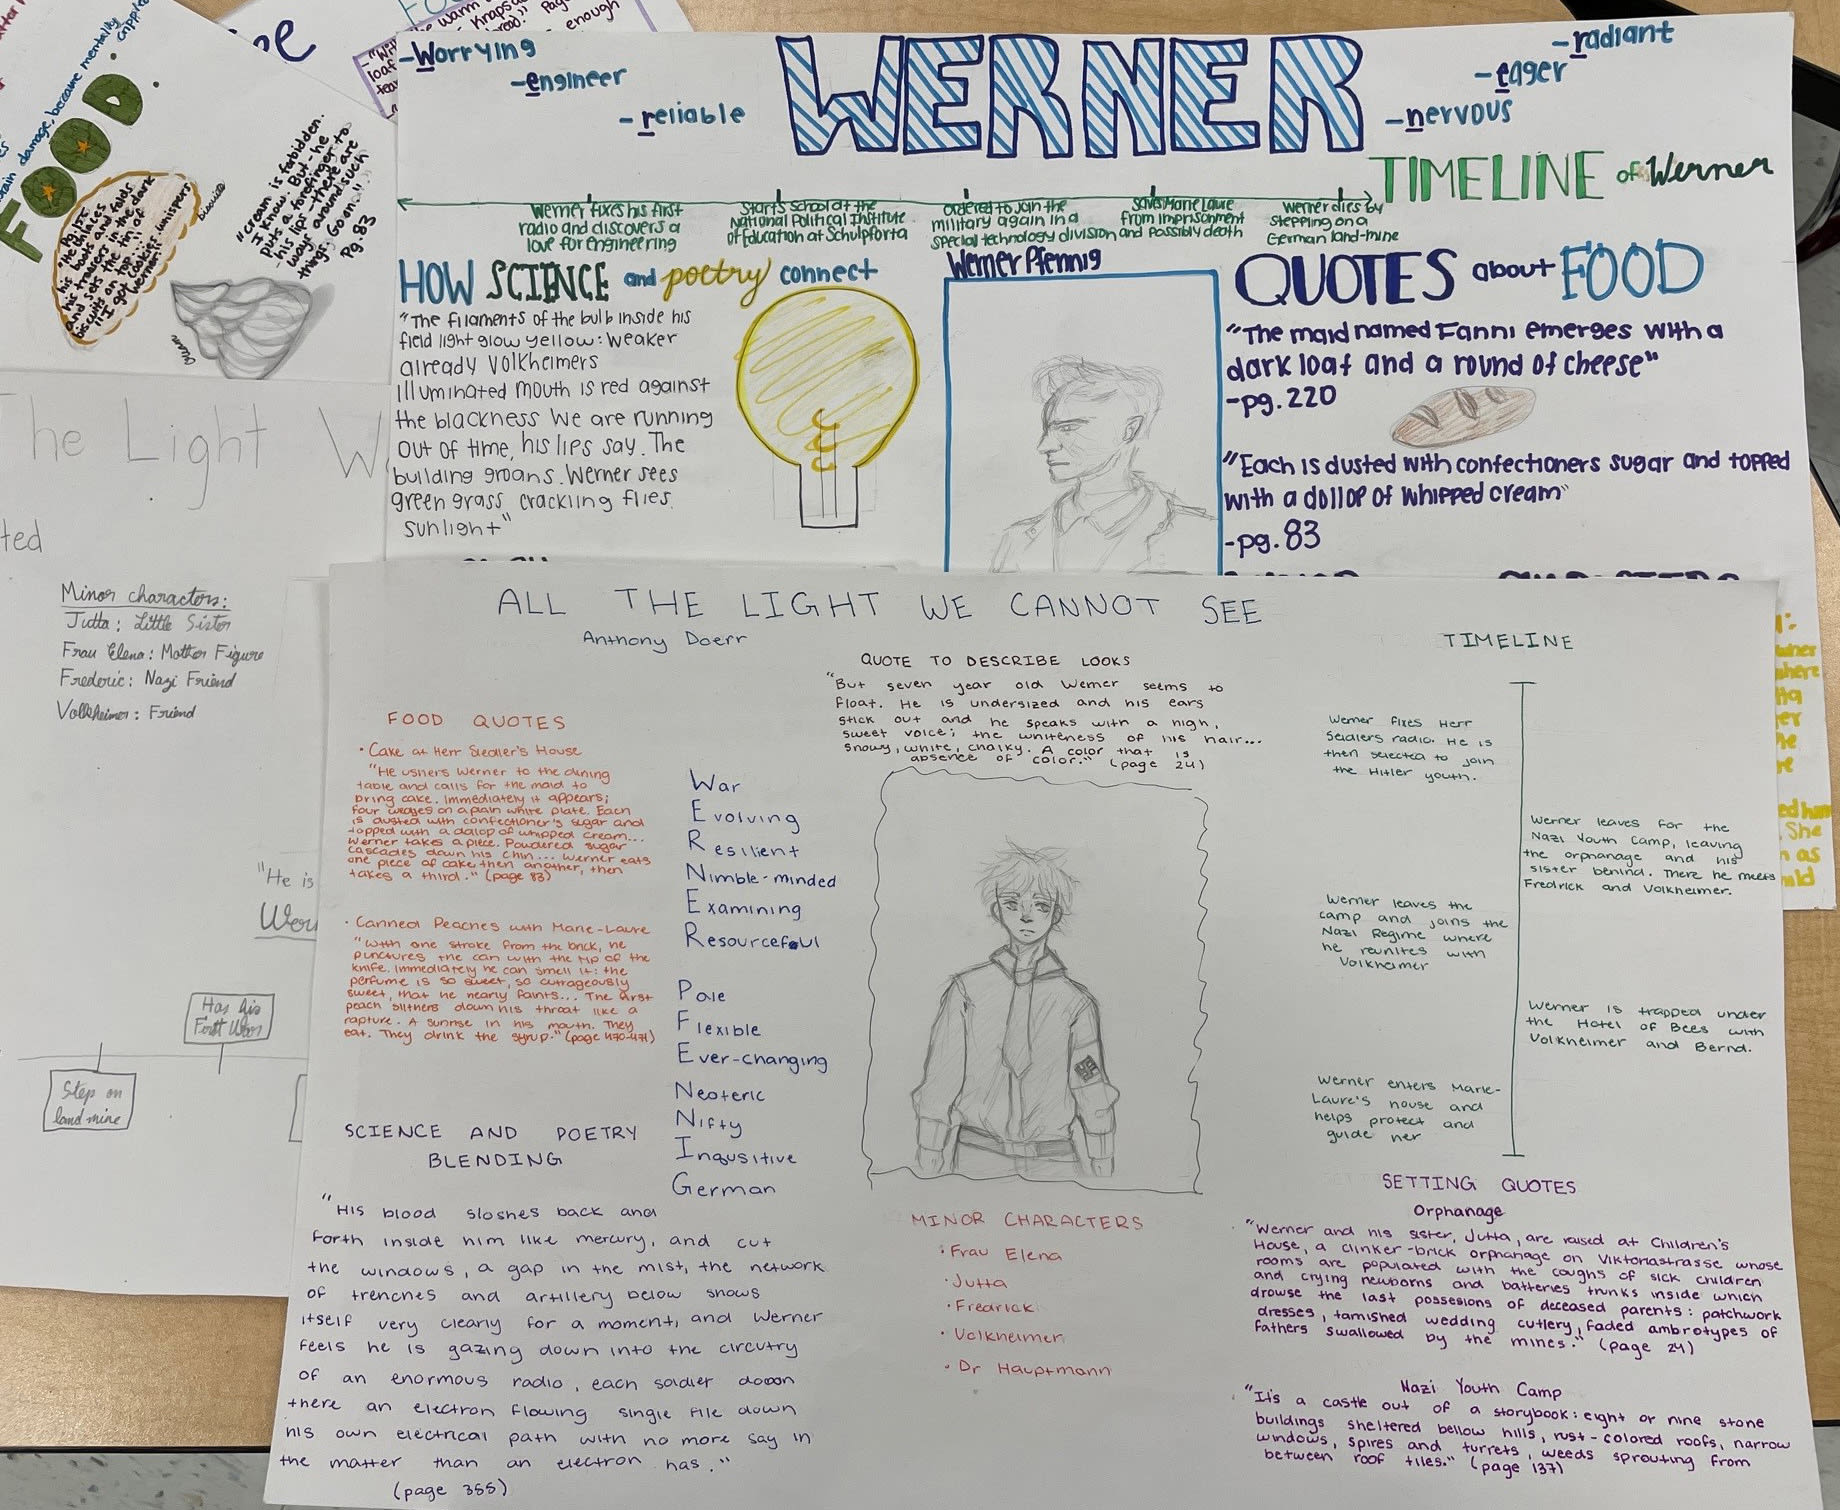 FOOD.
damage, became mentally
cripple
Pg.157
"He slices
his boots and folds
his trousers in the dark
and sets the tin of
biscuits on top."
"I got cookies" whispers
Werner."
biscuits
"cream is forbidden.
I know. But - he
puts a forefinger to
his lips - there are
ways around such
things. Go on."
Pg.83
cream
enough
- Worrying
- engineer
- reliable
WERNER
- radiant
- eager
- nervous
TIMELINE of Werner
Werner fixes his first
radio and discovers a
love for engineering
Starts school at the
National Political Institute
of Education at Schulpforta
ordered to join the
military again in a
special technology division
saves Marie Laure
from imprisonment
and possibly death
Werner dies by
stepping on a
German land-mine
HOW SCIENCE and poetry connect
"The filaments of the bulb inside his
field light glow yellow: Weaker
already Volkheimers
illuminated mouth is red against
the blackness We are running
out of time, his lips say. The
building groans. Werner sees
green grass, crackling flies,
sunlight"
Werner Pfennig
QUOTES about FOOD
"The maid named Fanni emerges with a
dark loaf and a round of cheese"
-pg. 220
"Each is dusted with confectioners sugar and topped
with a dollop of whipped cream"
-pg. 83
he Light W
ted
Minor characters:
Jutta: Little Sister
Frau Elena: Mother Figure
Frederic: Nazi Friend
Volkheimer: Friend
"He is
Wer
Has his
First War
Step on
land mine
ALL THE LIGHT WE CANNOT SEE
Anthony Doerr
FOOD QUOTES
• Cake at Herr Siedler's House
"He ushers Werner to the dining
table and calls for the maid to
bring cake. Immediately it appears;
four wedges on a plain white plate. Each
is dusted with confectioner's sugar and
topped with a dollop of whipped cream...
Werner takes a piece. Powdered sugar
cascades down his chin... Werner eats
one piece of cake then another, then
takes a third." (page 83)
• Canned Peaches with Marie-Laure
"With one stroke from the brick, he
punctures the can with the tip of the
knife. Immediately he can smell it: the
perfume is so sweet, so outrageously
sweet, that he nearly faints... The first
peach slithers down his throat like a
rapture. A sunrise in his mouth. They
eat. They drink the syrup." (page 470-471)
QUOTE TO DESCRIBE LOOKS
"But seven year old Werner seems to
float. He is undersized and his ears
stick out and he speaks with a high,
sweet voice; the whiteness of his hair...
snowy, white, chalky. A color that is
absence of color." (page 24)
War
Evolving
Resilient
Nimble-minded
Examining
Resourceful
Pale
Flexible
Ever-changing
Neoteric
Nifty
Inqusitive
German
TIMELINE
Werner fixes Herr
Seidlers radio. He is
then selected to join
the Hitler youth.
Werner leaves for the
Nazi Youth Camp, leaving
the orphanage and his
sister behind. There he meets
Fredrick and Volkheimer.
Werner leaves the
camp and joins the
Nazi Regime where
he reunites with
Volkheimer
Werner is trapped under
the Hotel of Bees with
Volkheimer and Bernd.
Werner enters Marie-
Laure's house and
helps protect and
guide her
SCIENCE AND POETRY
BLENDING
"His blood sloshes back and
forth inside him like mercury, and out
the windows, a gap in the mist, the network
of trenches and artillery below shows
itself very clearly for a moment, and Werner
feels he is gazing down into the circutry
of an enormous radio, each soldier down
there an electron flowing single file down
his own electrical path with no more say in
the matter than an electron has."
(page 355)
MINOR CHARACTERS
• Frau Elena
• Jutta
• Fredrick
• Volkheimer
• Dr Hauptmann
SETTING QUOTES
Orphanage
"Werner and his sister, Jutta, are raised at Children's
House, a clinker-brick orphanage on Viktoriastrasse whose
rooms are populated with the coughs of sick children
and crying newborns and batteries trunks inside which
drowse the last possesions of deceased parents: patchwork
dresses, tarnished wedding cutlery, faded ambrotypes of
fathers swallowed by the mines." (page 24)
Nazi Youth Camp
"It's a castle out of a storybook: eight or nine stone
buildings sheltered bellow hills, rust-colored roofs, narrow
windows, spires and turrets, weeds sprouting from
between roof tiles." (page 137)
She